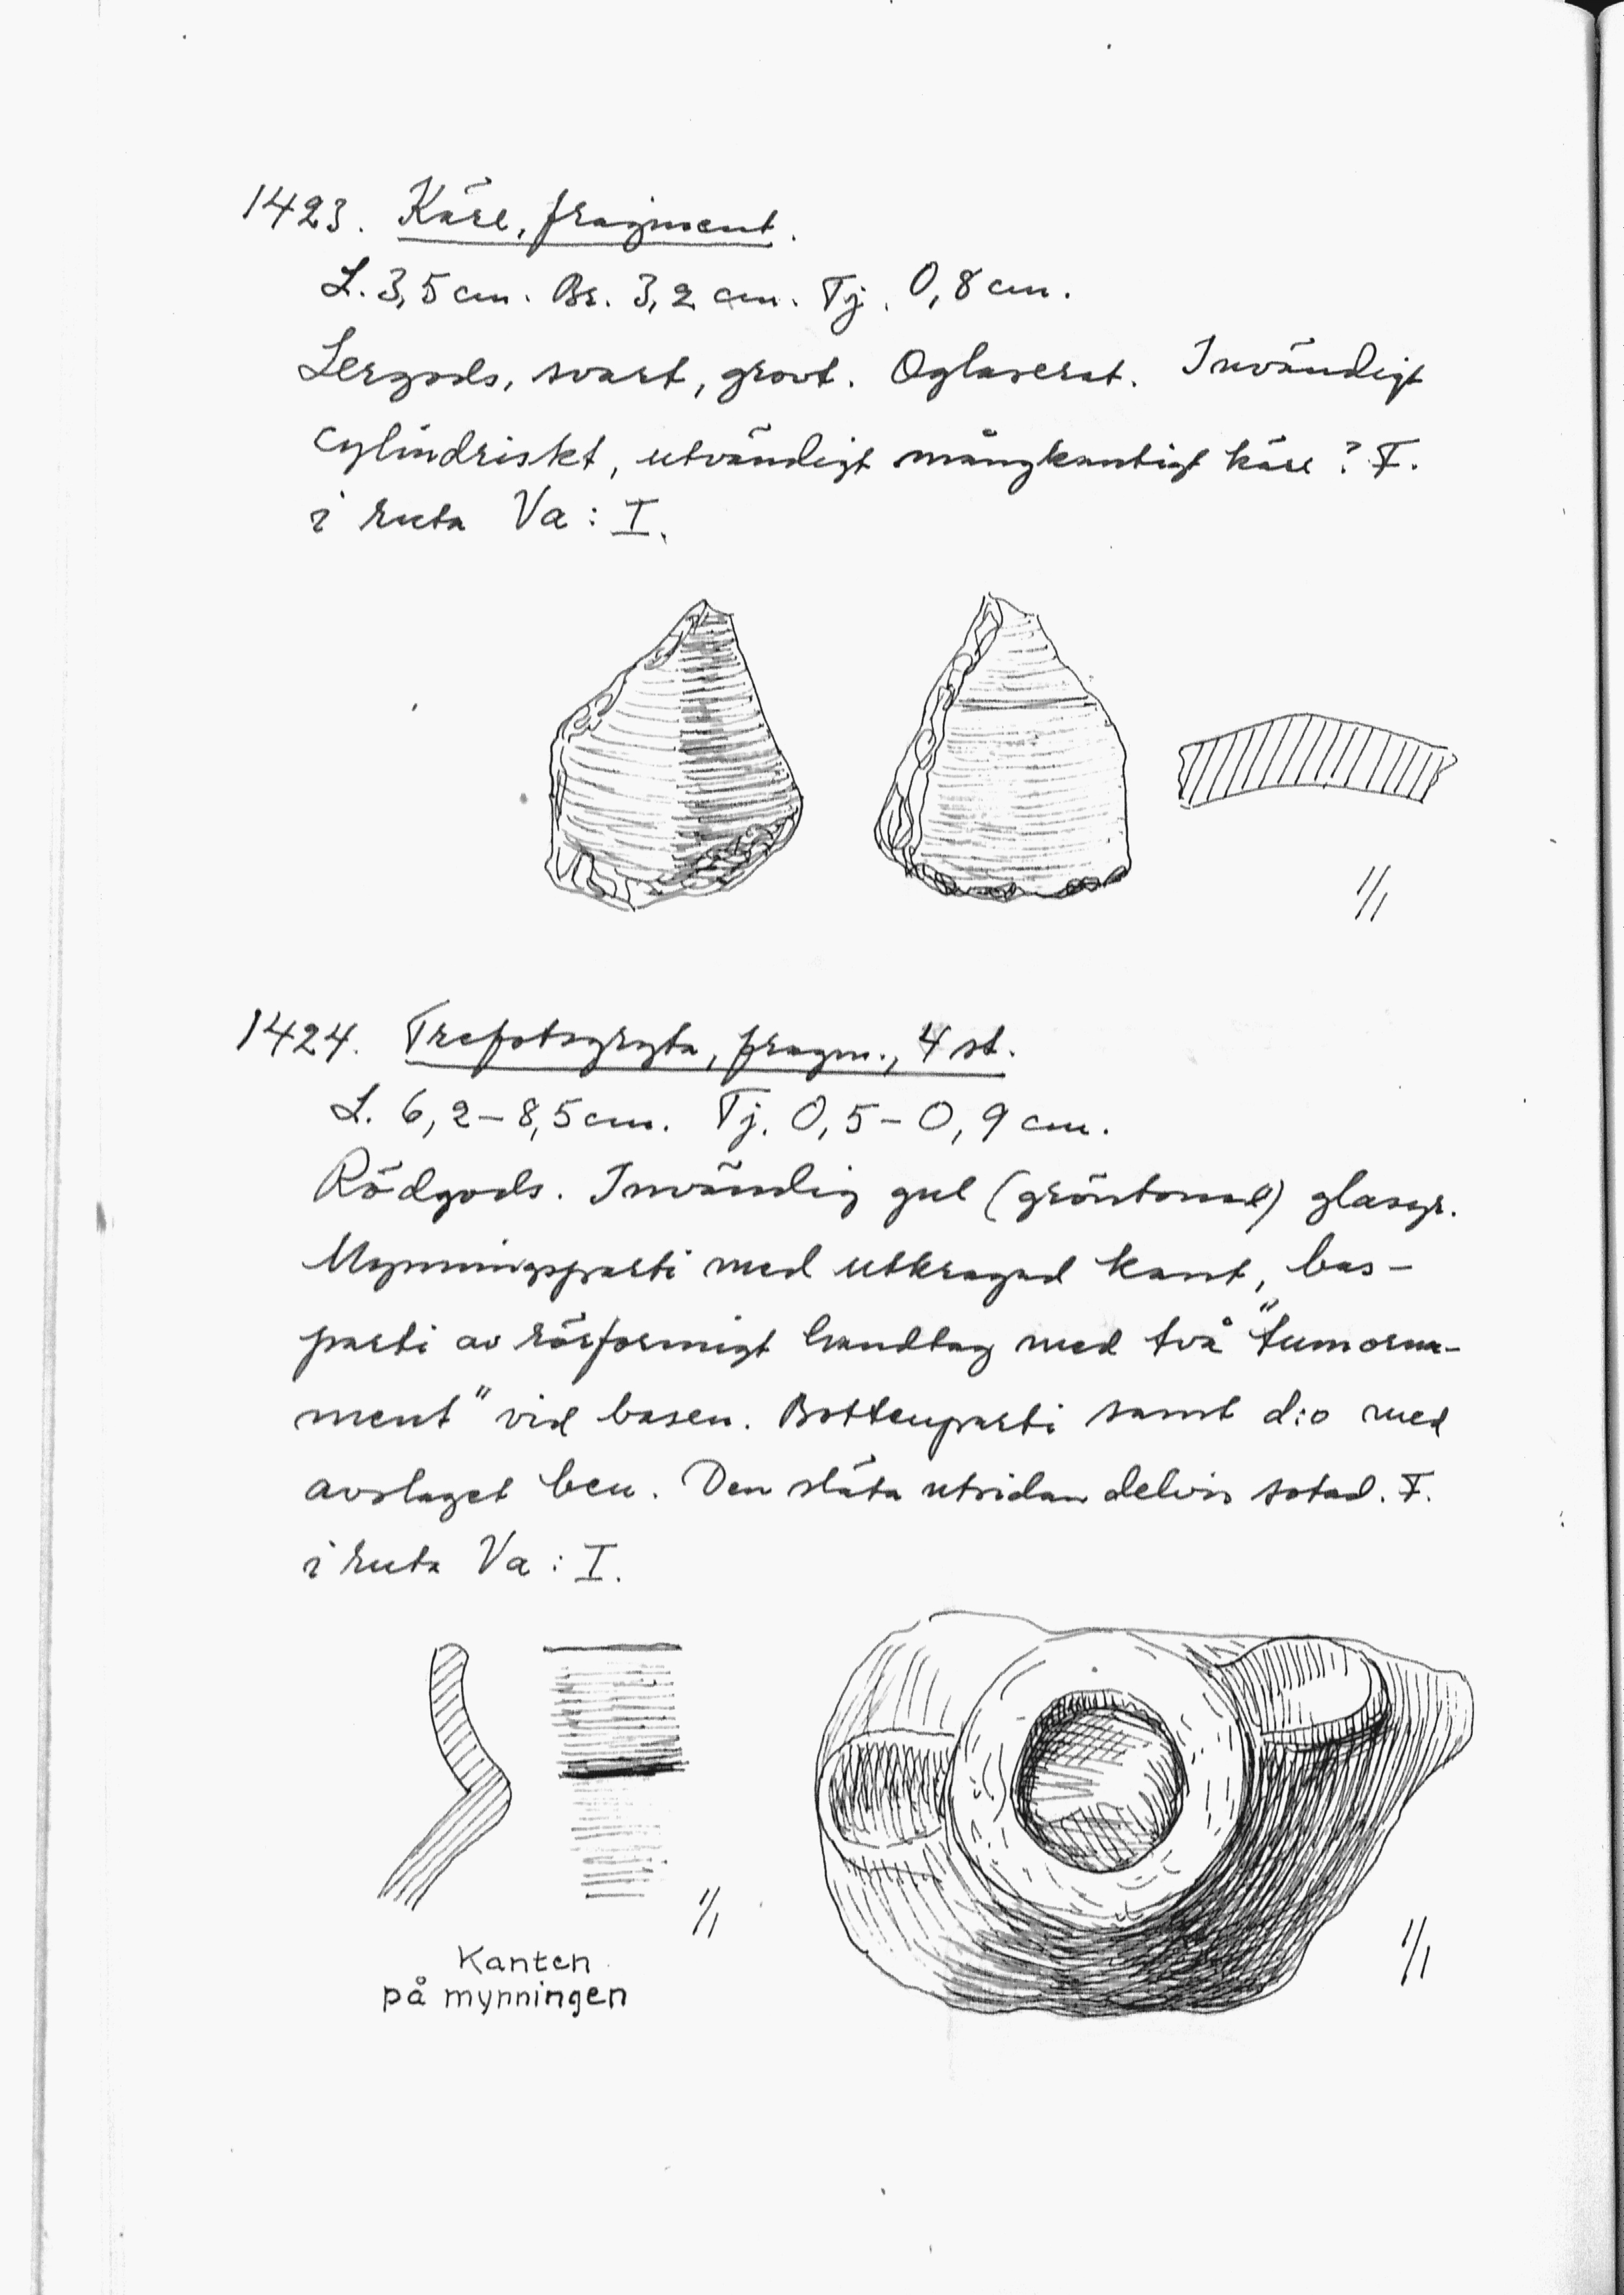 1423. Kärl, fragment.
L. 3,5 cm. Br. 3,2 cm. Tj. 0,8 cm.
Lergods, svart, grovt. Oglaserat. Invändigt
cylindriskt, utvändigt mångkantigt kärl? F.
i ruta Va: I.
1/1
1424. Trefotsgryta, fragm., 4 st.
L. 6,2-8,5 cm. Tj. 0,5-0,9 cm.
Rödgods. Invändig gul (gröntonad) glasyr.
Mynningsparti med utkragad kant, bas-
parti av rörformigt handtag med två "tumorna-
ment" vid basen. Bottenparti samt d:o med
avslaget ben. Den släta utsidan delvis sotad. F.
i ruta Va: I.
1/1
1/1
Kanten
på mynningen